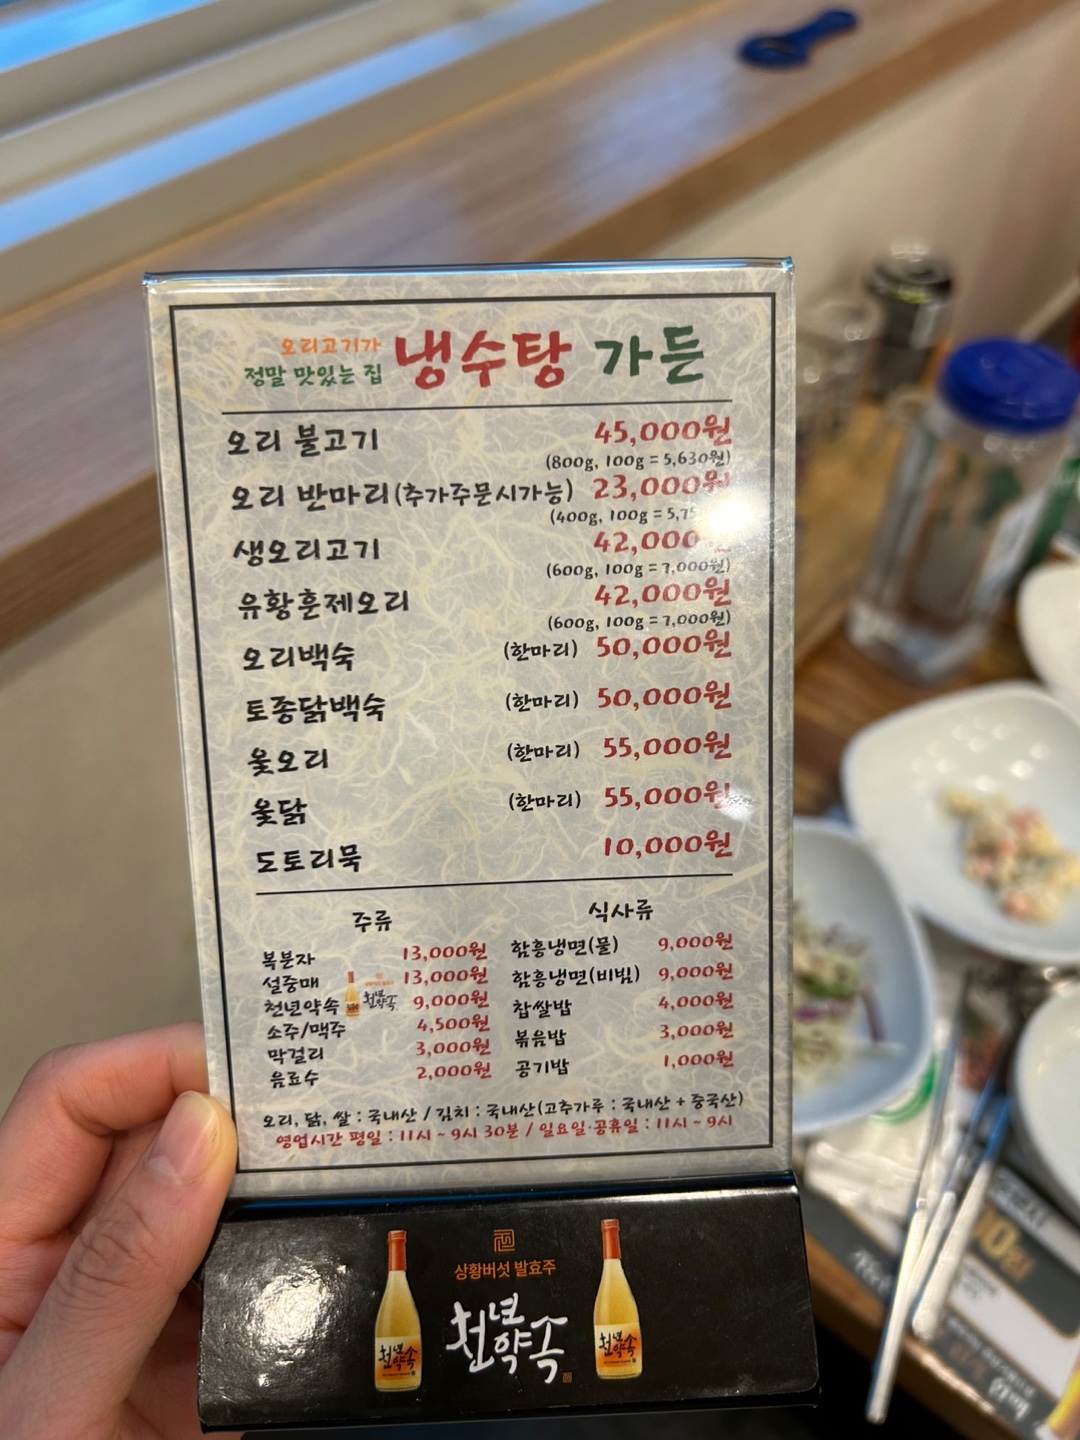 오리고기가
정말 맛있는 집 냉수탕 가든
오리 불고기 45,000원
(800g, 100g = 5,630원)
오리 반마리(추가주문시가능) 23,000원
(400g, 100g = 5,75
생오리고기 42,000
(600g, 100g = 7,000원)
유황훈제오리 42,000원
(600g, 100g = 7,000원)
오리백숙 (한마리) 50,000원
토종닭백숙 (한마리) 50,000원
옻오리 (한마리) 55,000원
옻닭 (한마리) 55,000원
도토리묵 10,000원
주류
복분자 13,000원
설중매 13,000원
천년약속 천년약속 9,000원
소주/맥주 4,500원
막걸리 3,000원
음료수 2,000원
식사류
함흥냉면(물) 9,000원
함흥냉면(비빔) 9,000원
찹쌀밥 4,000원
볶음밥 3,000원
공기밥 1,000원
오리, 닭, 쌀 : 국내산 / 김치 : 국내산(고추가루 : 국내산 + 중국산)
영업시간 평일 : 11시 ~ 9시 30분 / 일요일·공휴일 : 11시 ~ 9시
상황버섯 발효주
천년
약속
천년
약속
천년
약속